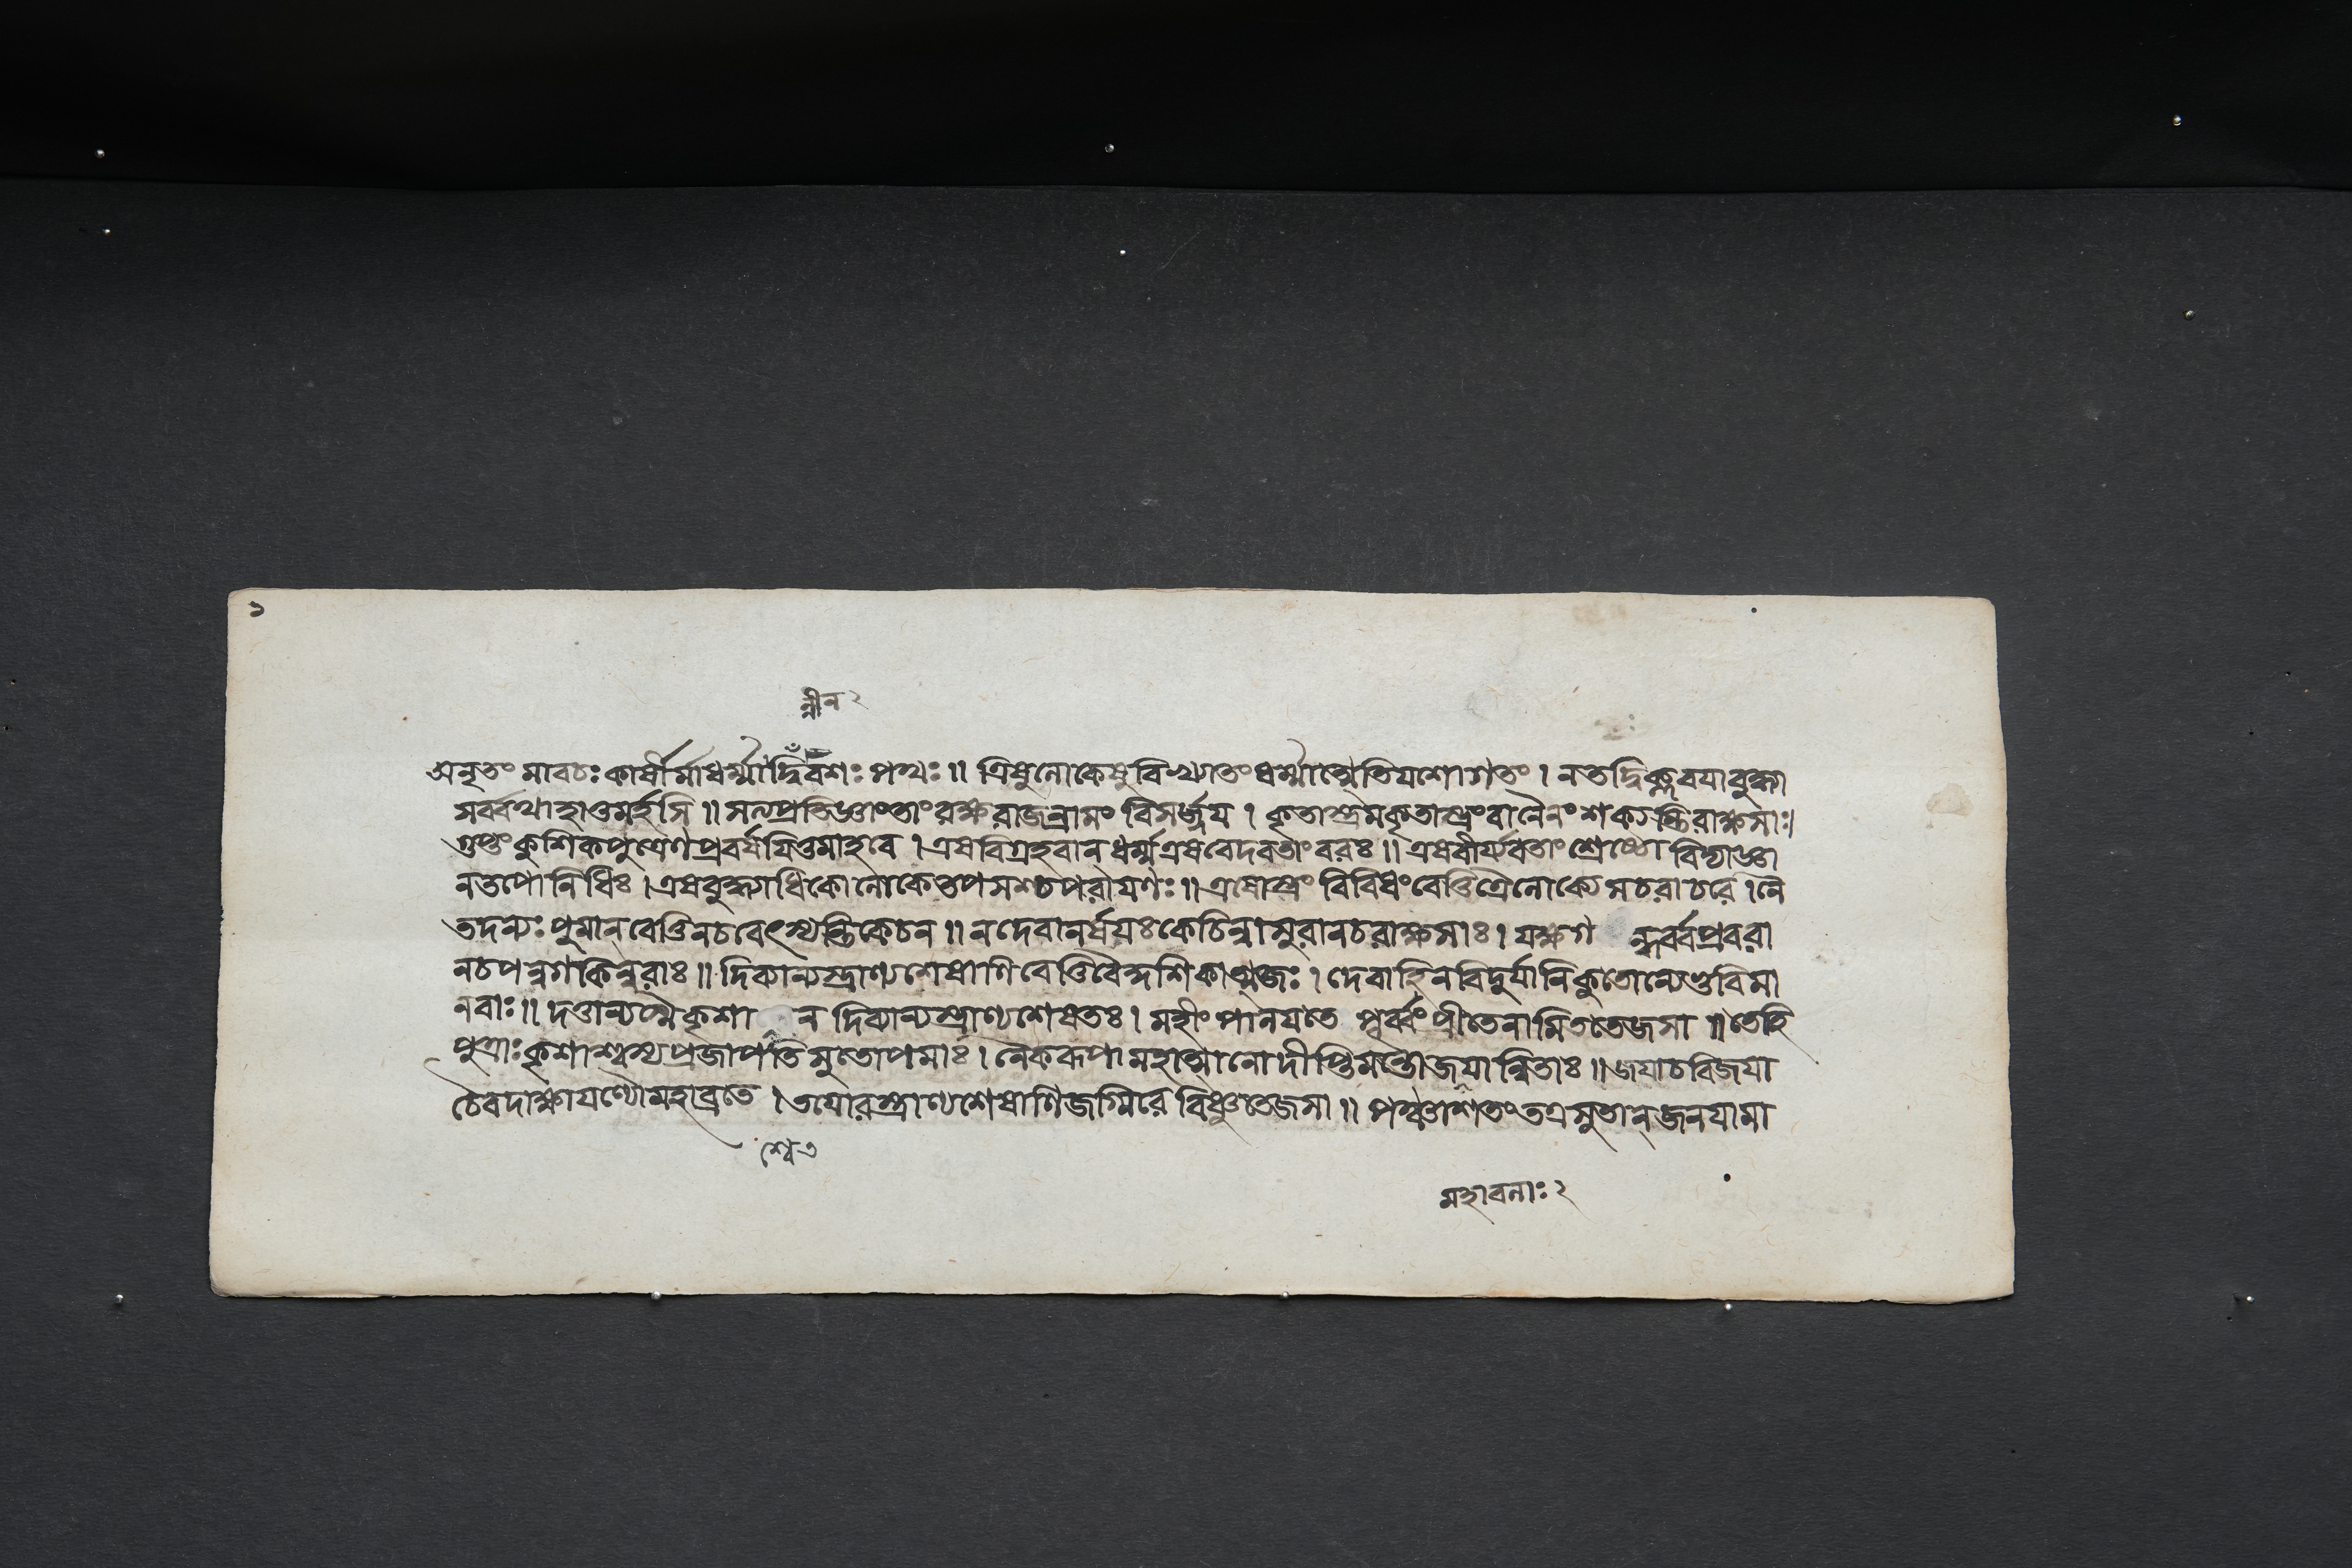 ১
ন্নীন ২
অনৃতং মাবচঃ কার্ষীর্মাধর্ম্মাদ্দিবশঃ পথ্যঃ ॥ ত্রিষুলোকেষুবিখ্যাতং ধর্ম্মাত্মেতিযশোগতং । নতদ্বিক্লবযাবুদ্ধ্যা
সর্ব্বথাহাতুমর্হসি ॥ সত্যপ্রতিজ্ঞাংতাংরক্ষরাজন্রামং বিসর্জ্জয । কৃতাস্ত্রমকৃতাস্ত্রংবানৈনং শক্ষ্যন্তিরাক্ষসাঃ।
গুপ্তং কুশিকপুত্রেণপ্রধর্ষযিতুমাহবে । এষবিগ্রহবান ধর্ম্ম এষবেদবতাং বরঃ ॥ এষবীর্য্যবতাং শ্রেষ্ঠো বিদ্যাজ্ঞা
নতপোনিধিঃ । এষবুদ্ধ্যাধিকোলোকেতপসশ্চপরাযণঃ ॥ এষোস্ত্রং বিবিধংবেত্তিত্রৈলোক্যে সচরাচরে । নৈ
তদন্যঃ পুমান্ বেত্তিনচবেৎস্যন্তিকেচন ॥ নদেবানর্ষযঃকেচিন্নাসুরানচরাক্ষসাঃ । যক্ষগ ন্ধর্ব্বপ্রবরা
নচপন্নগকিন্নরাঃ ॥ দিব্যান্যস্ত্রাণ্যশেষাণিবেত্তিবৈকুশিকাত্মজঃ । দেবাহিনবিদুর্যানিকুতোন্যেভুবিমা
নবাঃ ॥ দত্তান্যস্মৈকৃশা ন দিব্যান্যস্ত্রাণ্যশেষতঃ । মহীং পালযতে পূর্ব্বং প্রীতেনামিততেজসা ॥ তেহি
পুত্রাঃ কৃশাশ্বস্যপ্রজাপতিসুতোপমাঃ । নৈকরূপামহাত্মানোদীপ্তিমন্তোজযান্বিতাঃ ॥ জযাচবিজযা
চৈবদাক্ষাযণ্যৌমহাব্রতে । তযোরস্ত্রাণ্যশেষাণিজজ্ঞিরে বিষ্ণুতেজসা ॥ পঞ্চাশতংতত্রসুতান্ জনযামা
শ্বেন
মহাবলাঃ ২